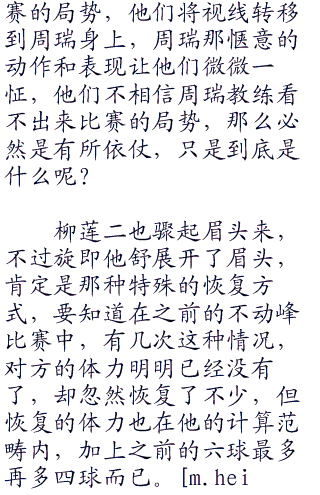 赛的局势，他们将视线转移
到周瑞身上，周瑞那惬意的
动作和表现让他们微微一
怔，他们不相信周瑞教练看
不出来比赛的局势，那么必
然是有所依仗，只是到底是
什么呢？
柳莲二也骤起眉头来，
不过旋即他舒展开了眉头，
肯定是那种特殊的恢复方
式，要知道在之前的不动峰
比赛中，有几次这种情况，
对方的体力明明已经没有
了，却忽然恢复了不少，但
恢复的体力也在他的计算范
畴内，加上之前的六球最多
再多四球而已。[m.hei